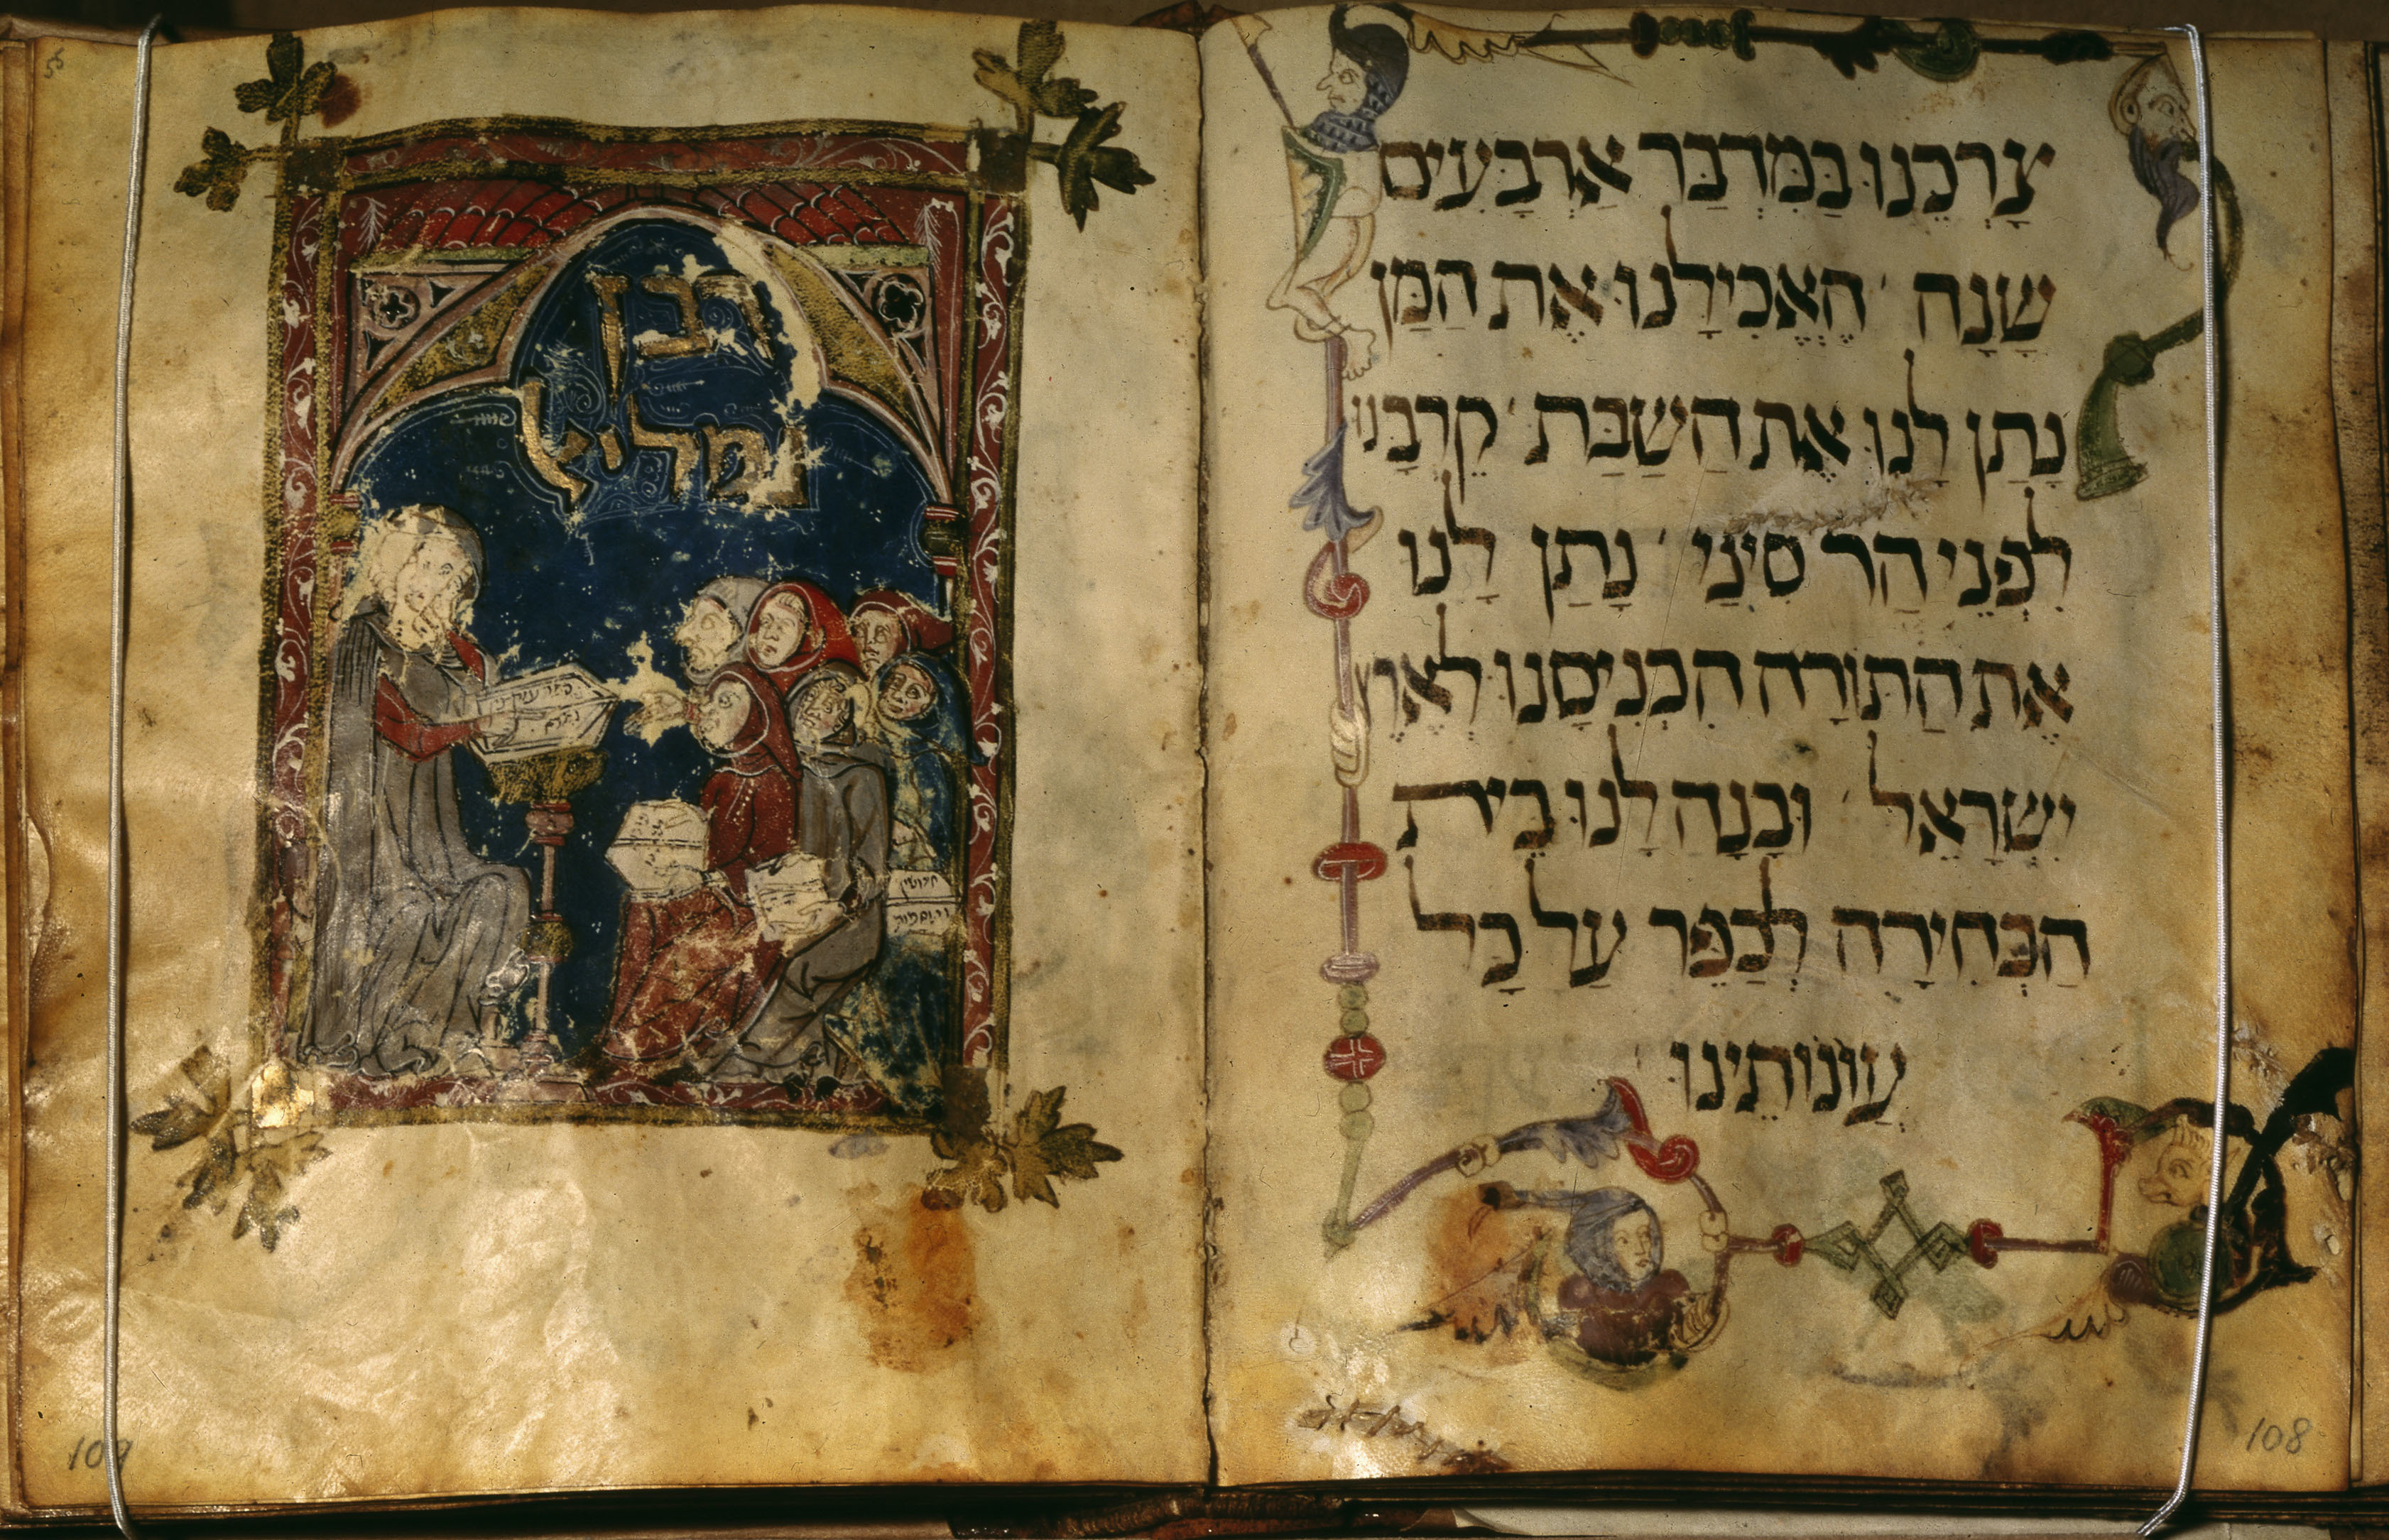 צָרְכֵנוּ בַּמִּדְבַּר אַרְבָּעִים
שָׁנָה הֶאֱכִילָנוּ אֶת הַמָּן
נָתַן לָנוּ אֶת הַשַּׁבָּת קֵרְבָנוּ
לִפְנֵי הַר סִינַי נָתַן לָנוּ
אֶת הַתּוֹרָה הִכְנִיסָנוּ לְאֶרֶץ
יִשְׂרָאֵל וּבָנָה לָנוּ בֵּית
הַבְּחִירָה לְכַפֵּר עַל כָּל
עֲוֹנוֹתֵינוּ
108
רבן
גמליאל
109